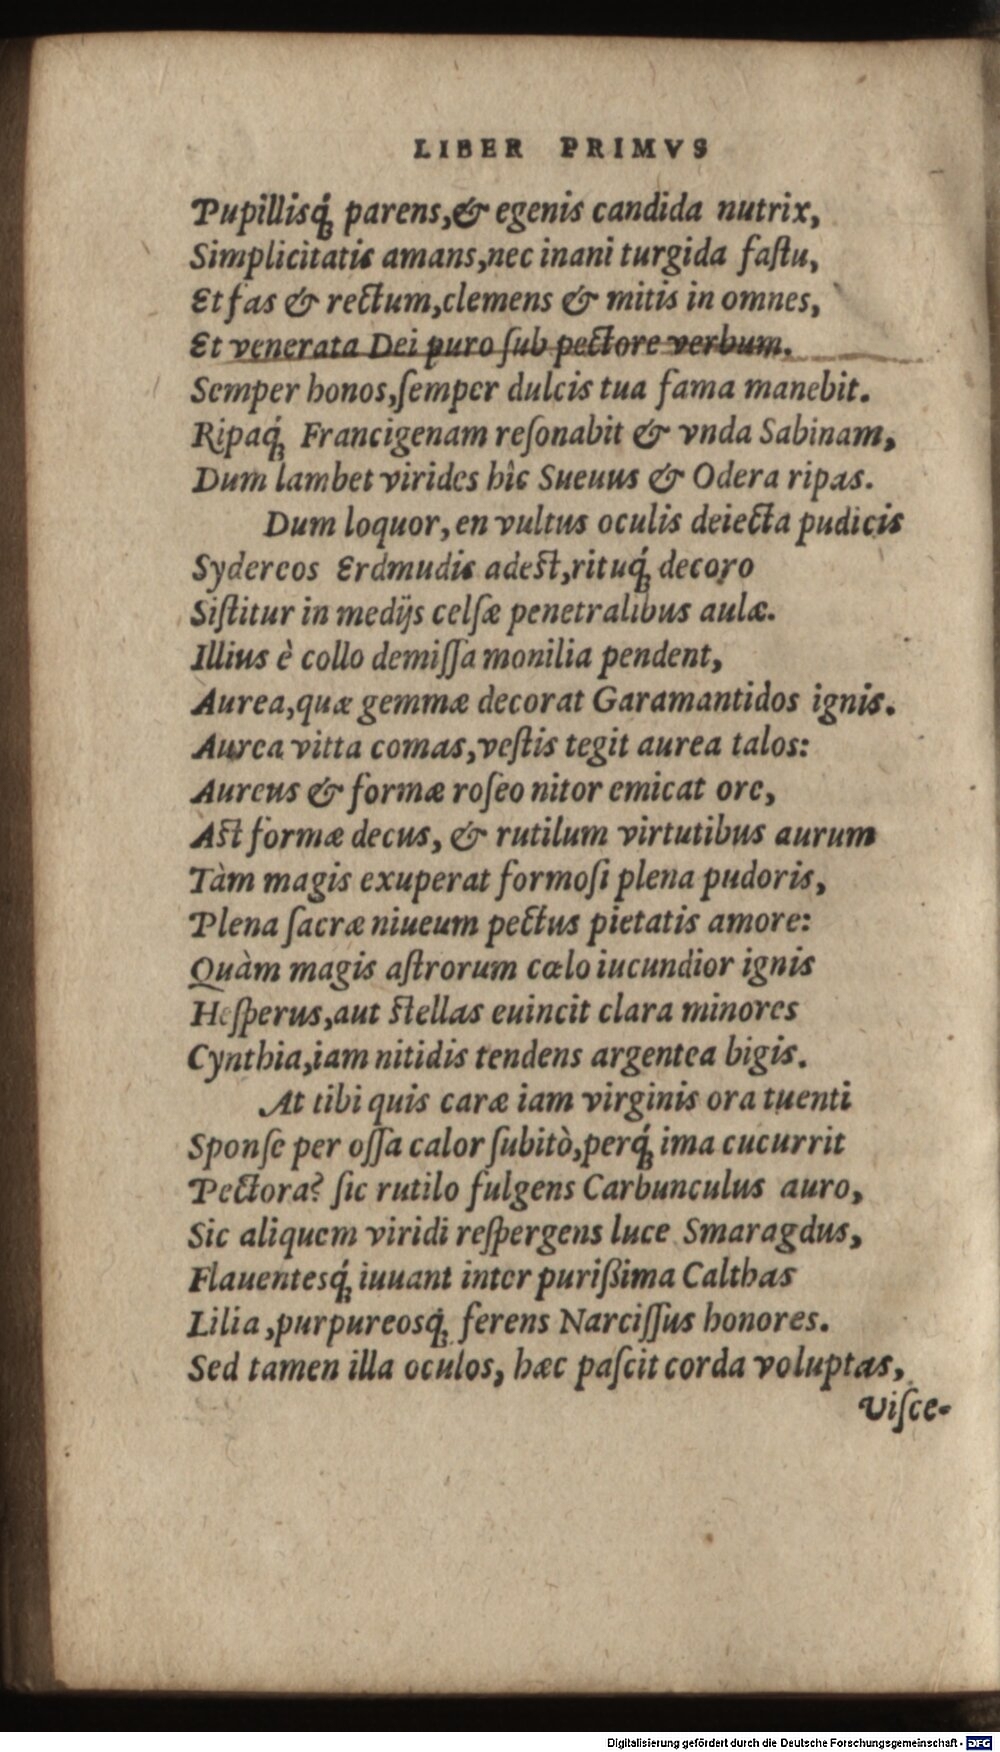 LIBER PRIMVS
Pupillisq́ꝫ parens,& egenis candida nutrix,
Simplicitatis amans,nec inani turgida faſtu,
Et fas & rectum,clemens & mitis in omnes,
Et venerata Dei puro ſub pectore verbum.
Semper honos,ſemper dulcis tua fama manebit.
Ripaq́ꝫ Francigenam reſonabit & vnda Sabinam,
Dum lambet virides hìc Sueuus & Odera ripas.
Dum loquor, en vultus oculis deiecta pudicis
Sydereos Erdmudis adest,rituq́ꝫ decoro
Siſtitur in medijs celſæ penetralibus aulæ.
Illius è collo demiſſa monilia pendent,
Aurea,quæ gemmæ decorat Garamantidos ignis.
Aurea vitta comas,veſtis tegit aurea talos:
Aureus & formæ roſeo nitor emicat ore,
Ast formæ decus, & rutilum virtutibus aurum
Tàm magis exuperat formoſi plena pudoris,
Plena ſacræ niueum pectus pietatis amore:
Quàm magis aſtrorum cœlo iucundior ignis
Heſperus,aut stellas euincit clara minores
Cynthia,iam nitidis tendens argentea bigis.
At tibi quis caræ iam virginis ora tuenti
Sponſe per oſſa calor ſubitò,perq́ꝫ ima cucurrit
Pectora? ſic rutilo fulgens Carbunculus auro,
Sic aliquem viridi reſpergens luce Smaragdus,
Flauentesq́ꝫ iuuant inter purißima Calthas
Lilia,purpureosq́ꝫ ferens Narciſſus honores.
Sed tamen illa oculos, hæc paſcit corda voluptas,
Viſce-
Digitalisierung gefördert durch die Deutsche Forschungsgemeinschaft - DFG